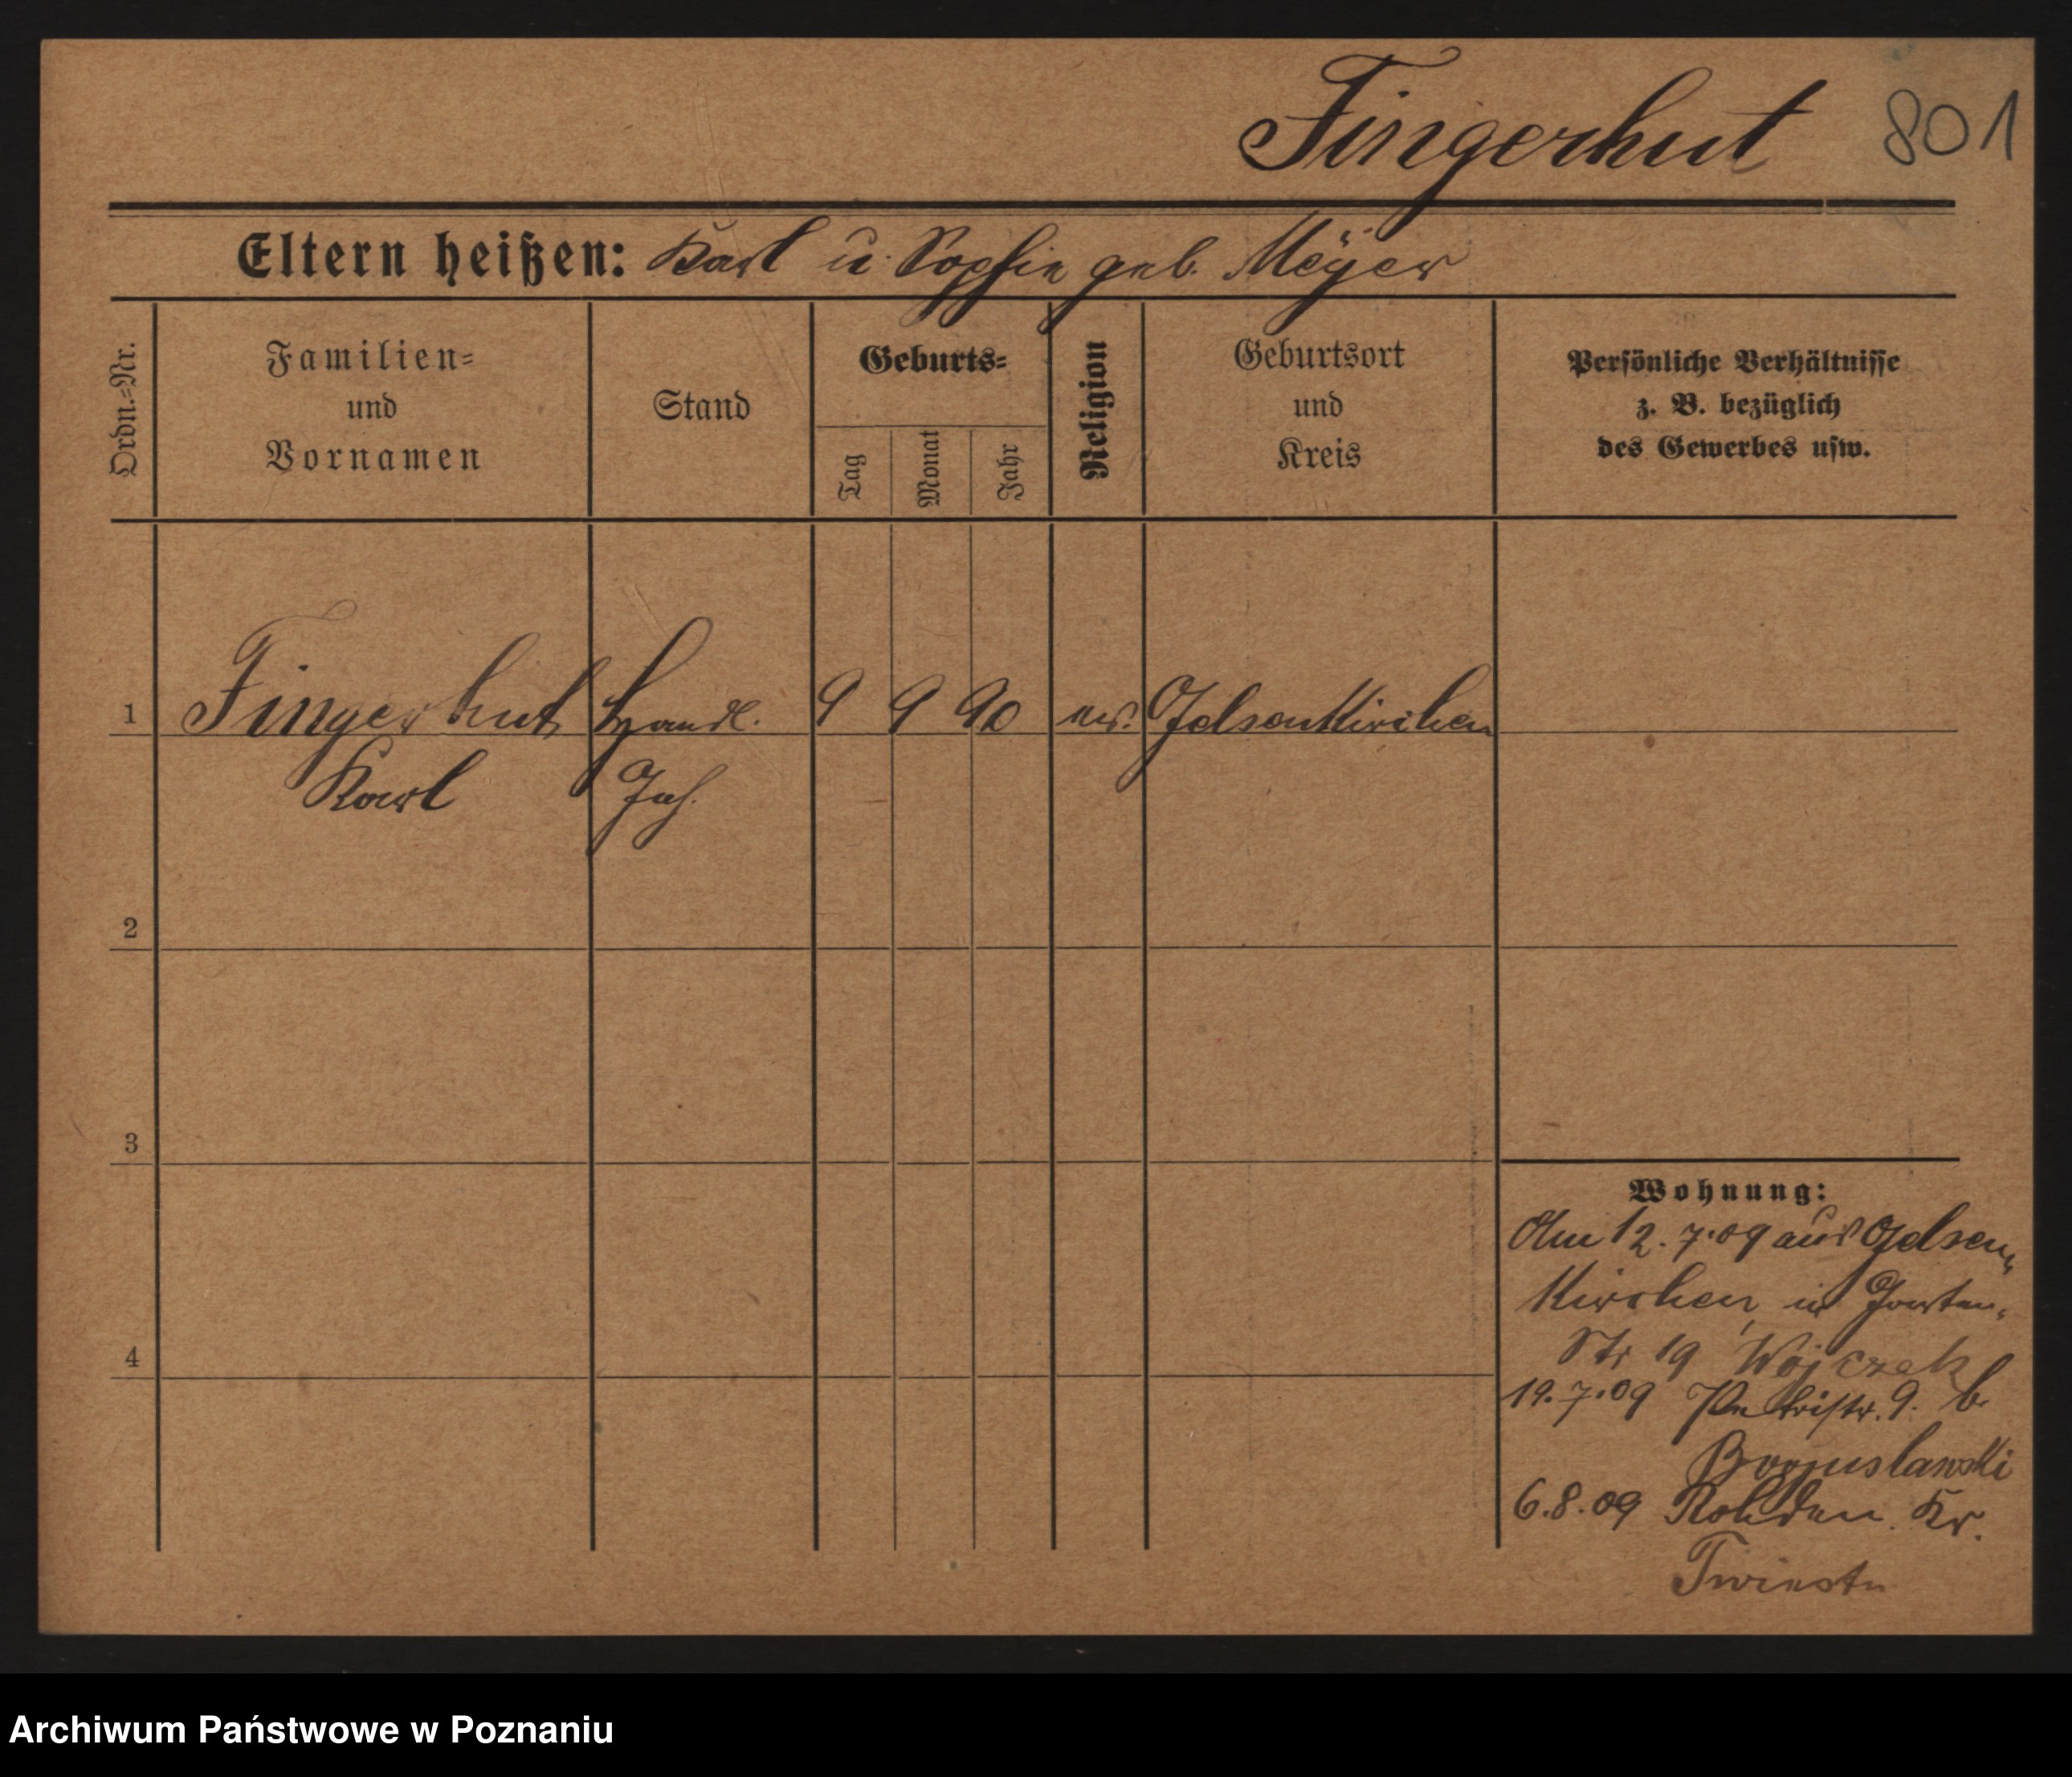 Fingerhut 801
Eltern heißen: Karl u. Sophie geb. Meÿer
Ordn.-Nr.
Familien-
und
Vornamen
Stand
Geburts-
Tag
Monat
Jahr
Religion
Geburtsort
und
Kreis
Persönliche Verhältnisse
z. B. bezüglich
des Gewerbes usw.
1 Fingerhut Handl. 9 9 90 ev. Gelsenkirchen
Karl
2
3
4
Wohnung:
Am 12.7.09 aus Gelsen-
kirchen in
Str 19
19.7.09 Petristr. 9. b.
Boguslawski
6.8.09 Rohden Kr.
Twieste
Archiwum Państwowe w Poznaniu